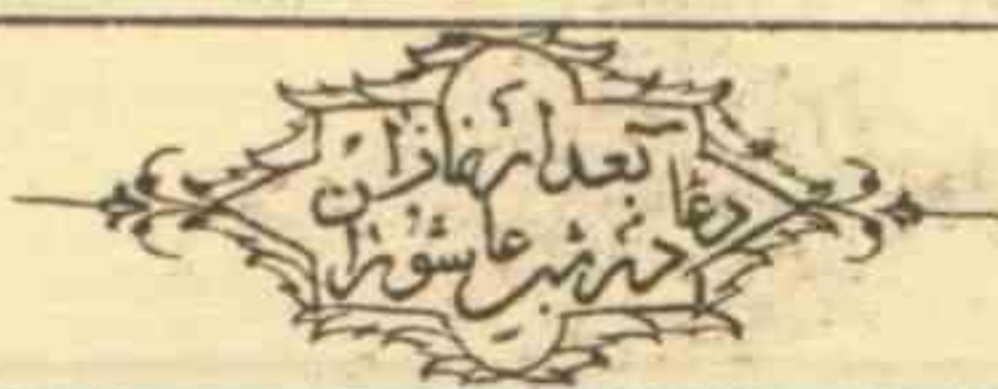 دعا بعد از نماز آن
در شب عاشورا